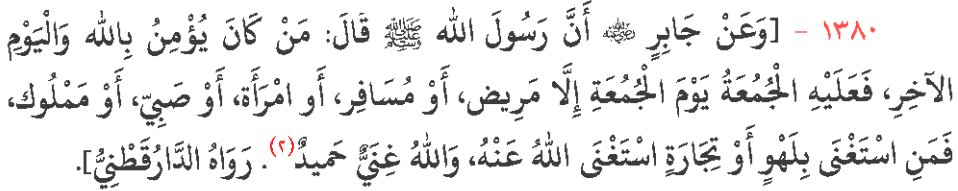 ١٣٨٠ - [وَعَنْ جَابِرٍ ﵁ أَنَّ رَسُولَ الله ﷺ قَالَ: مَنْ كَانَ يُؤْمِنُ بِالله وَالْيَوْمِ
الآخِرِ، فَعَلَيْهِ الْجُمُعَةُ يَوْمَ الْجُمُعَةِ إِلَّا مَرِيض، أَوْ مُسَافِر، أَو امْرَأَة، أَوْ صَبِيّ، أَوْ مَمْلُوك،
فَمَنِ اسْتَغْنَى بِلَهْوٍ أَوْ تِجَارَةٍ اسْتَغْنَى اللهُ عَنْهُ، وَاللهُ غَنِيٌّ حَمِيدٌ(٢). رَوَاهُ الدَّارُقَطْنِيُّ].